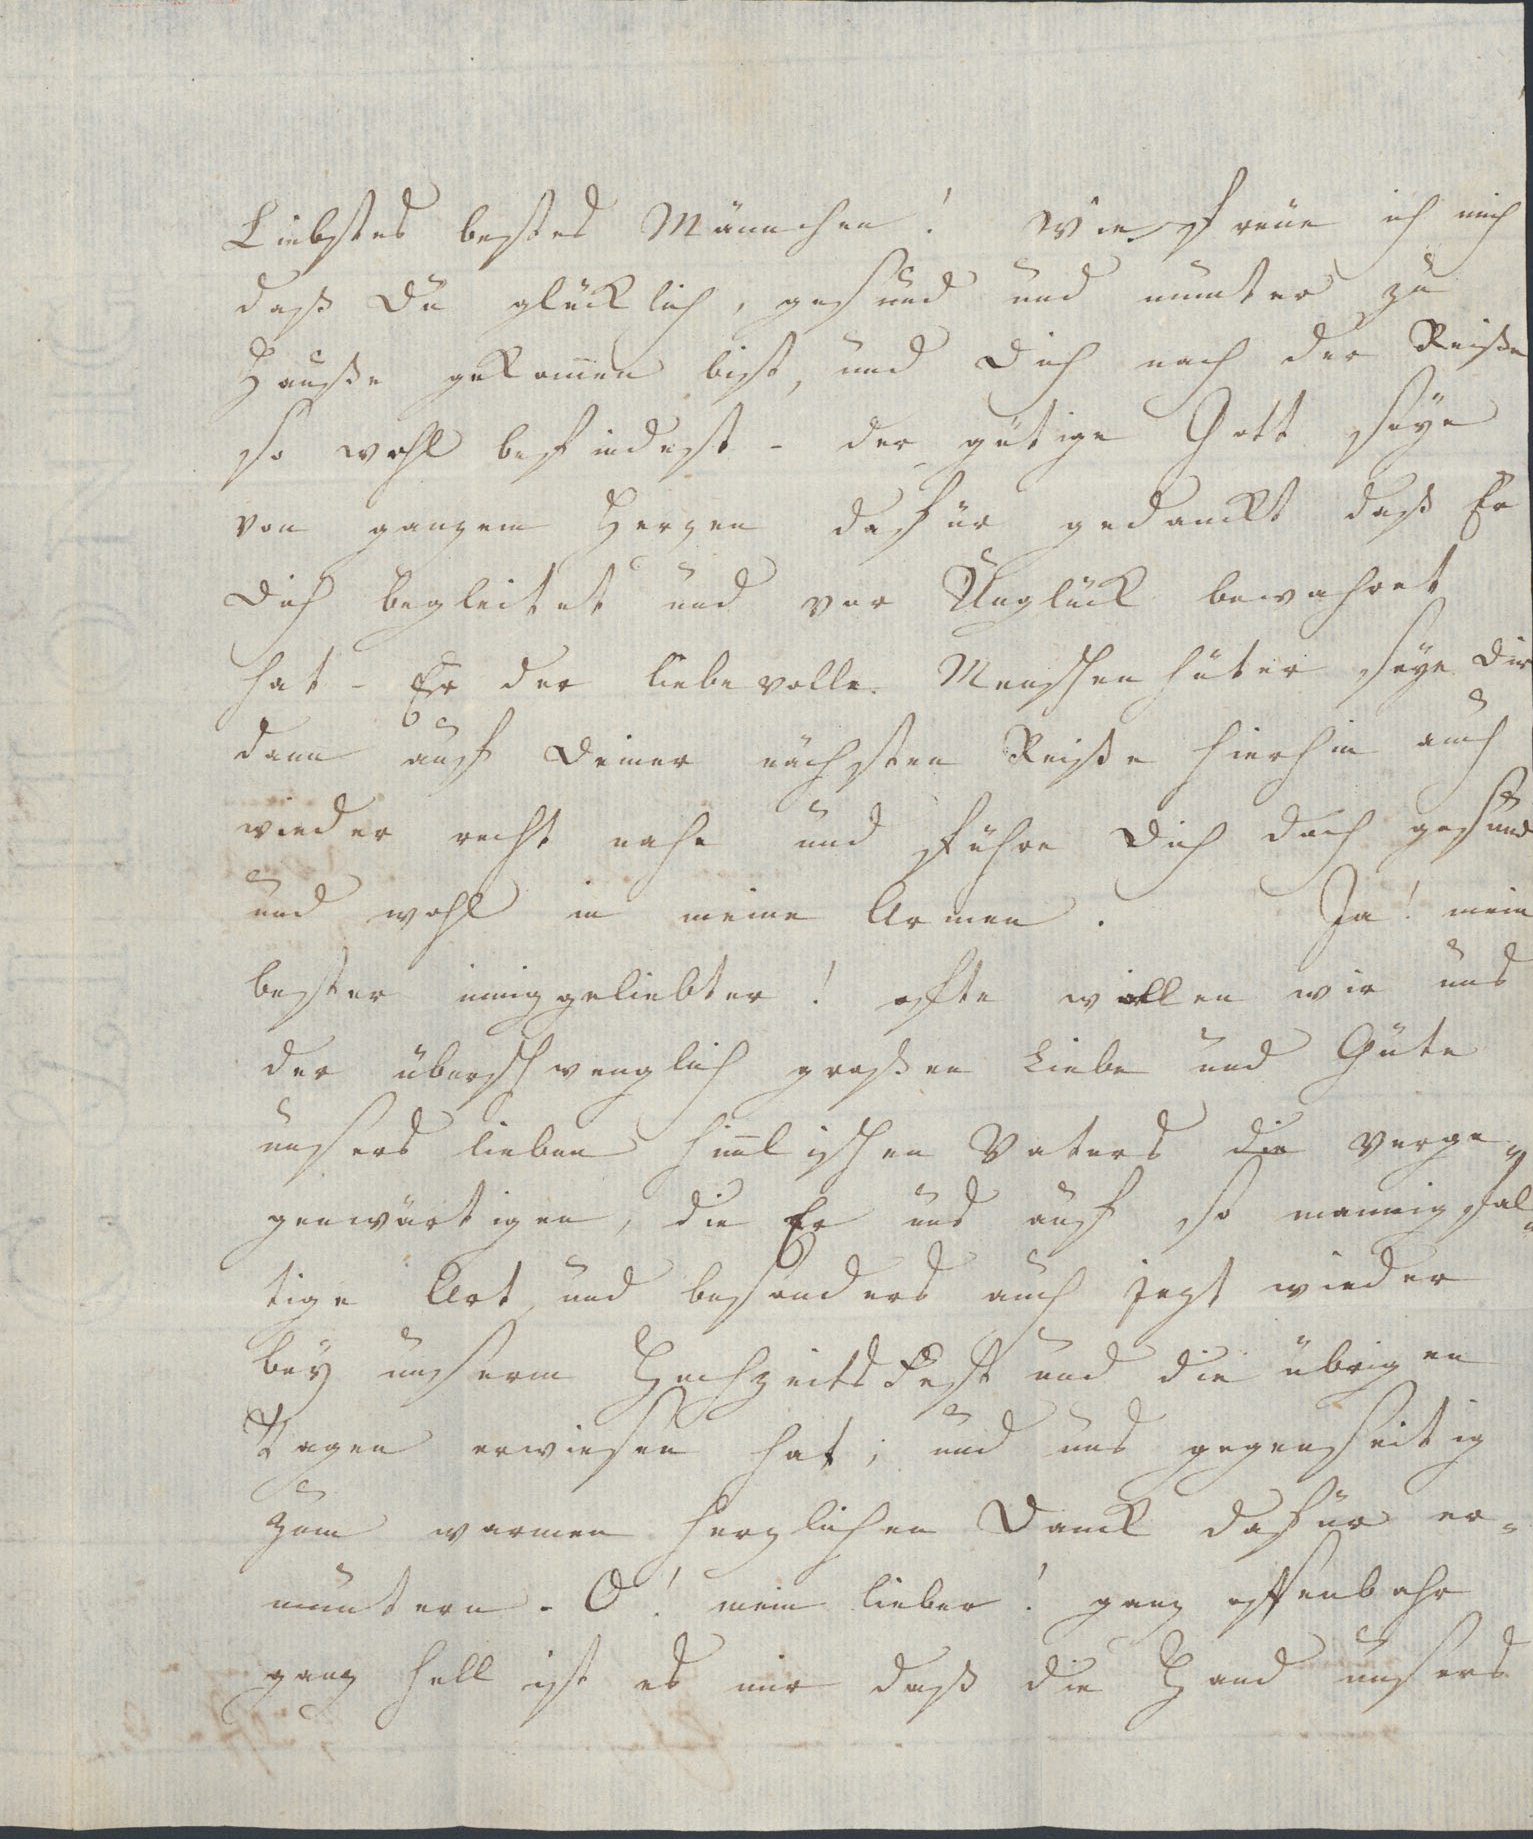 Liebstes bestes Männchen! Wie freüe ich mich
daß Du glücklich, gesund und munter zu
Hauße gekom̄en bist, und Dich nach der Reiße
so wohl befindest - der gütige Gott seÿe
von ganzem Herzen dafür gedanckt daß Er
Dich begleitet und vor Unglück bewahret
hat - Er der liebevolle Menschenhüter seÿe Dir
dann auf Deiner nächsten Reiße hierhin auch
wieder recht nahe und führe Dich doch gesund
und wohl in meine Armen. Ja! mein
bester inniggeliebter! ofte wollen wir uns
der überschwenglich großen Liebe und Güte
unsers lieben him̄lischen Vaters die verge-
genwärtigen, die Er uns auf so mannigfal-
tige Art, und besonders auch jezt wieder
beÿ unserm Hochzeits Fest und die übrigen
Tagen erwiesen hat; und uns gegenseitig
zum warmen herzlichen Danck dafür er-
muntern - O! mein lieber! ganz offenbahr
ganz hell ist es mir daß die Hand unsers